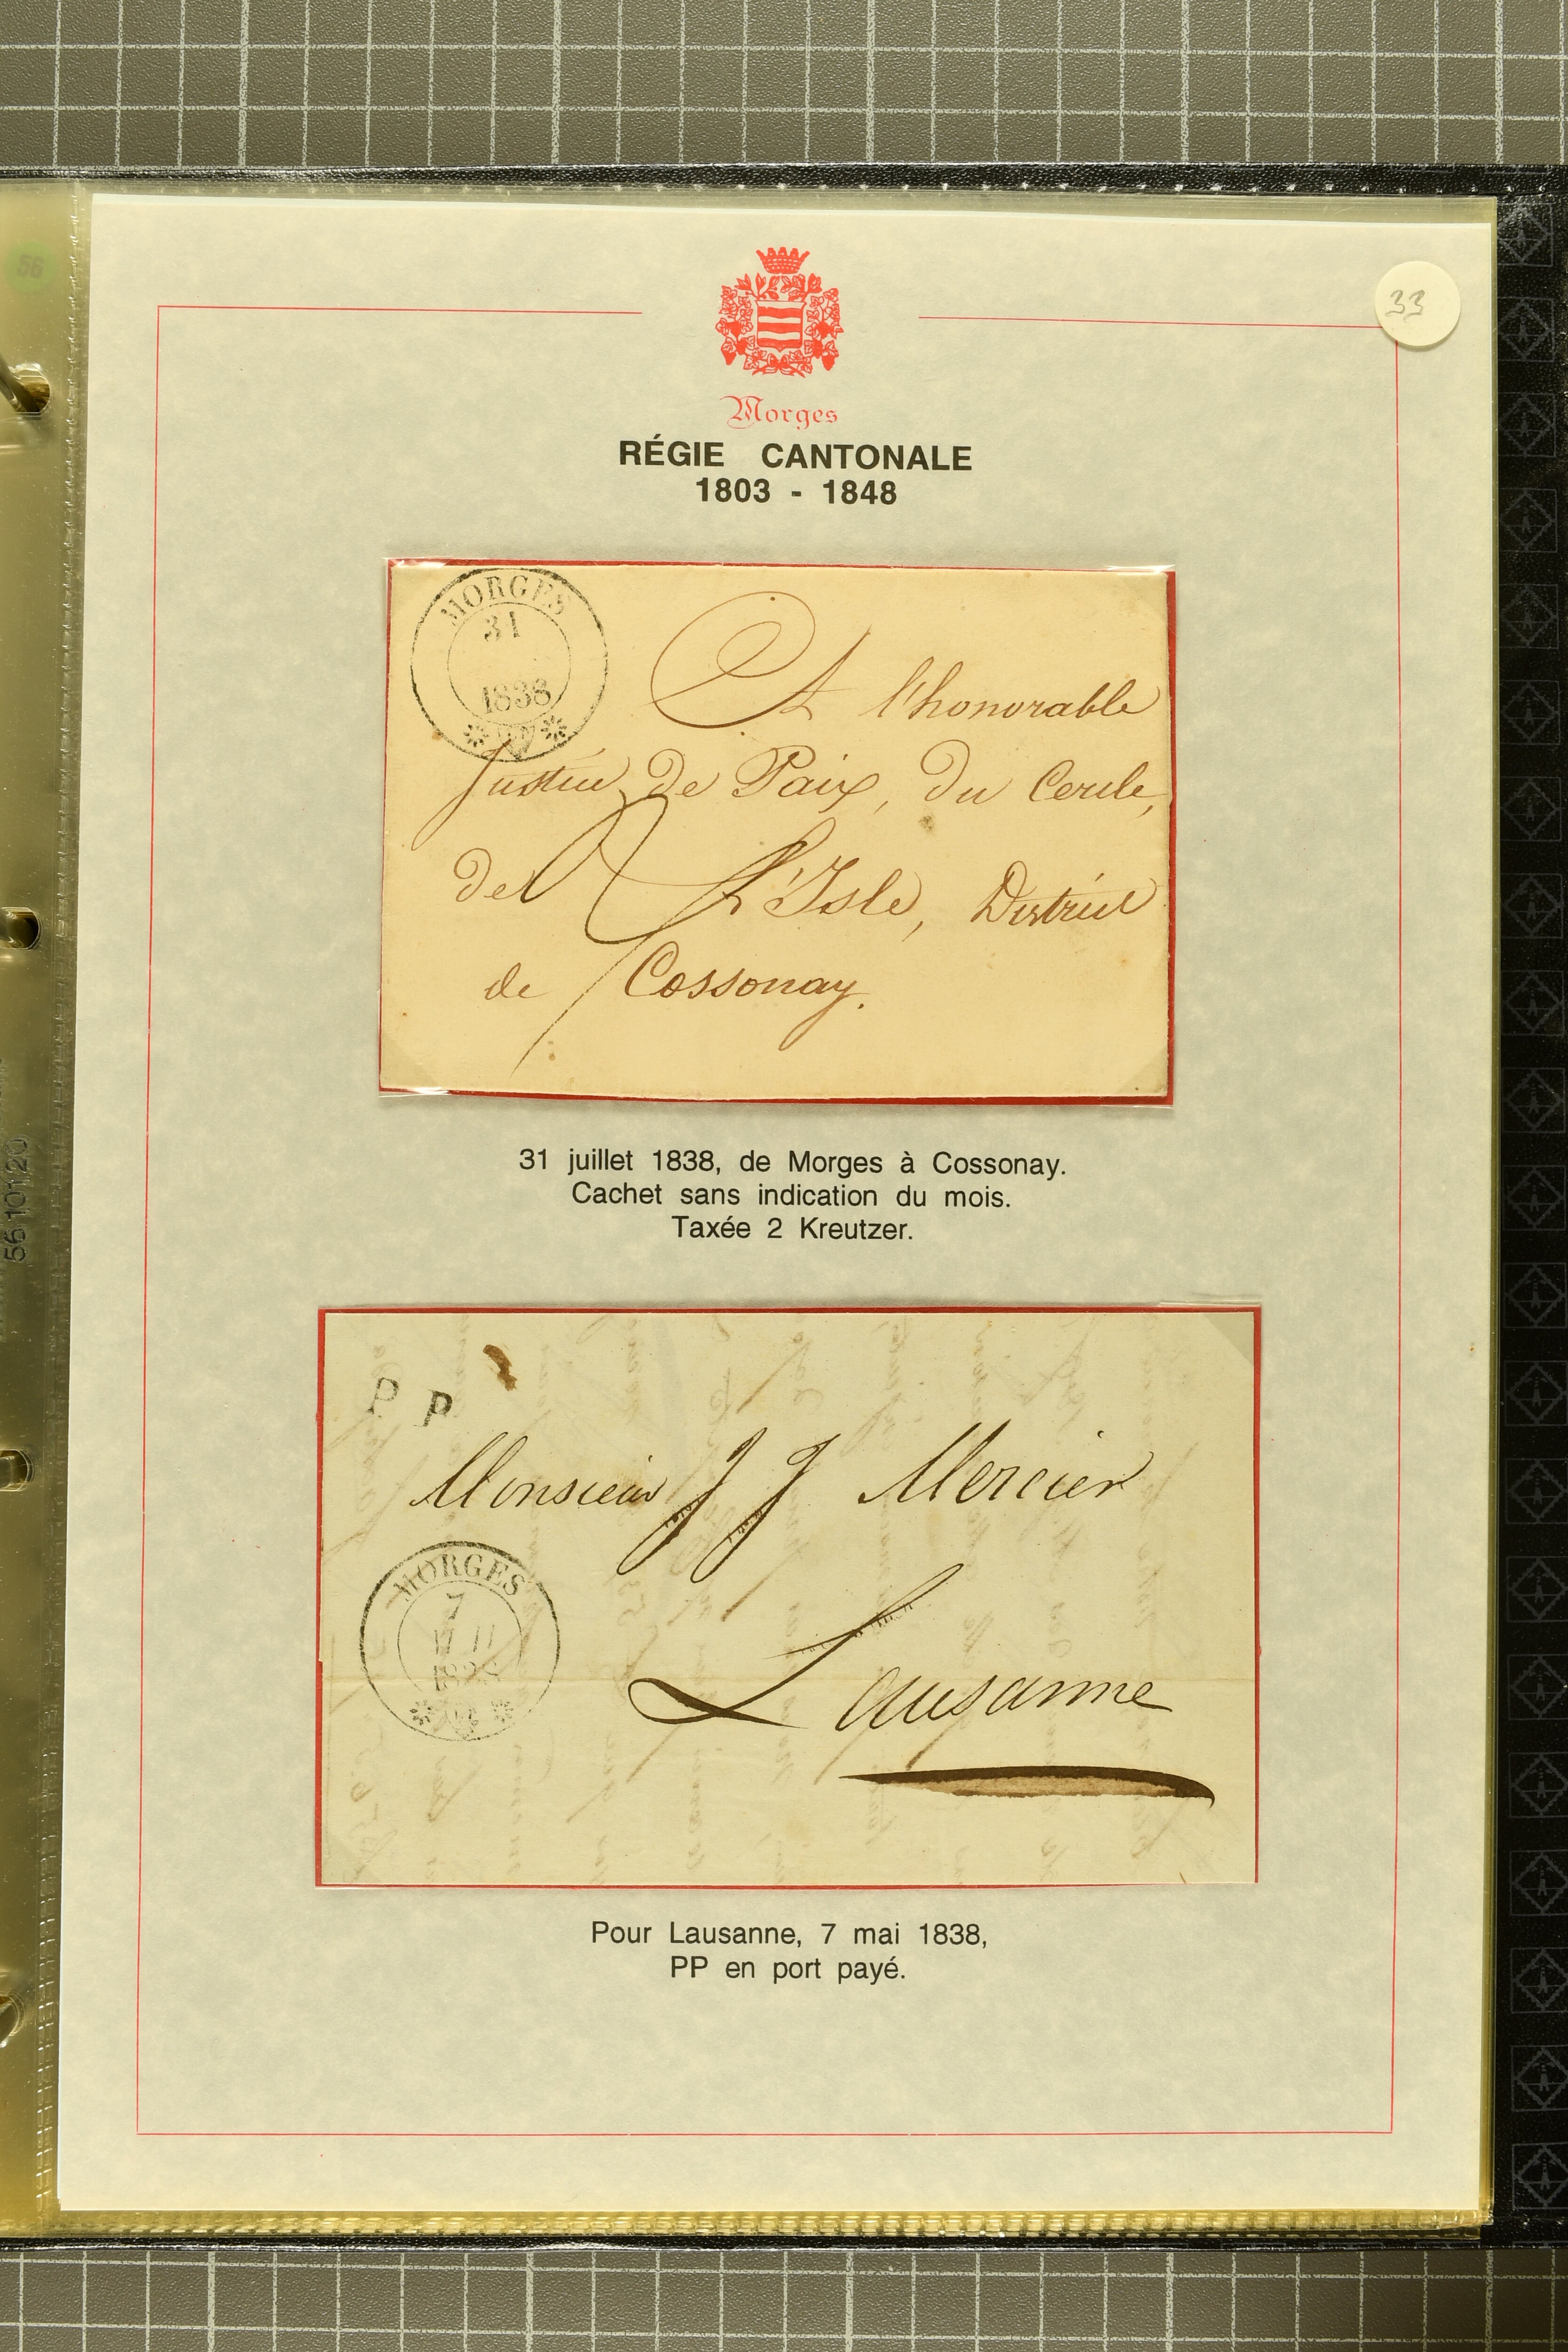 56
33
Morges
RÉGIE CANTONALE
1803 - 1848
MORGES
31
1838
A l'honorable
Justice de Paix, du Cercle,
de L'Isle, District
de Cossonay.
31 juillet 1838, de Morges à Cossonay.
Cachet sans indication du mois.
Taxée 2 Kreutzer.
P P
Monsieur J J Mercier
MORGES
7
Lausanne
Pour Lausanne, 7 mai 1838,
PP en port payé.
5610120